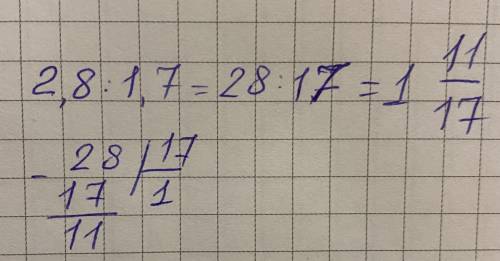 2,8 : 1,7 = 28 : 17 = 1 11/17
- 28 | 17
17 | 1
11